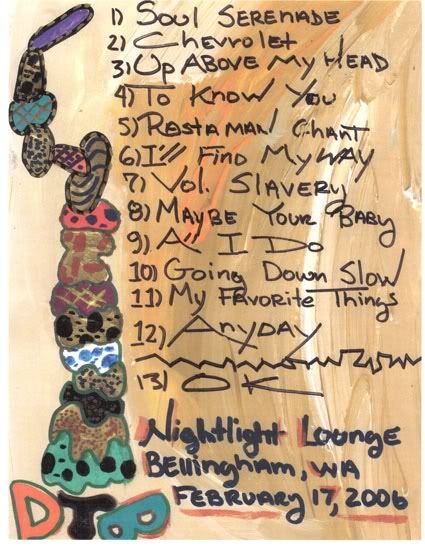 1) Soul Serenade
2) Chevrolet
3) Up Above My Head
4) To Know You
5) Rastaman Chant
6) I'll Find My Way
7) Vol. Slavery
8) Maybe Your Baby
9) All I Do
10) Going Down Slow
11) My Favorite Things
12) Anyday
13) OK
Nightlight Lounge
Bellingham, WA
February 17, 2006
DTB